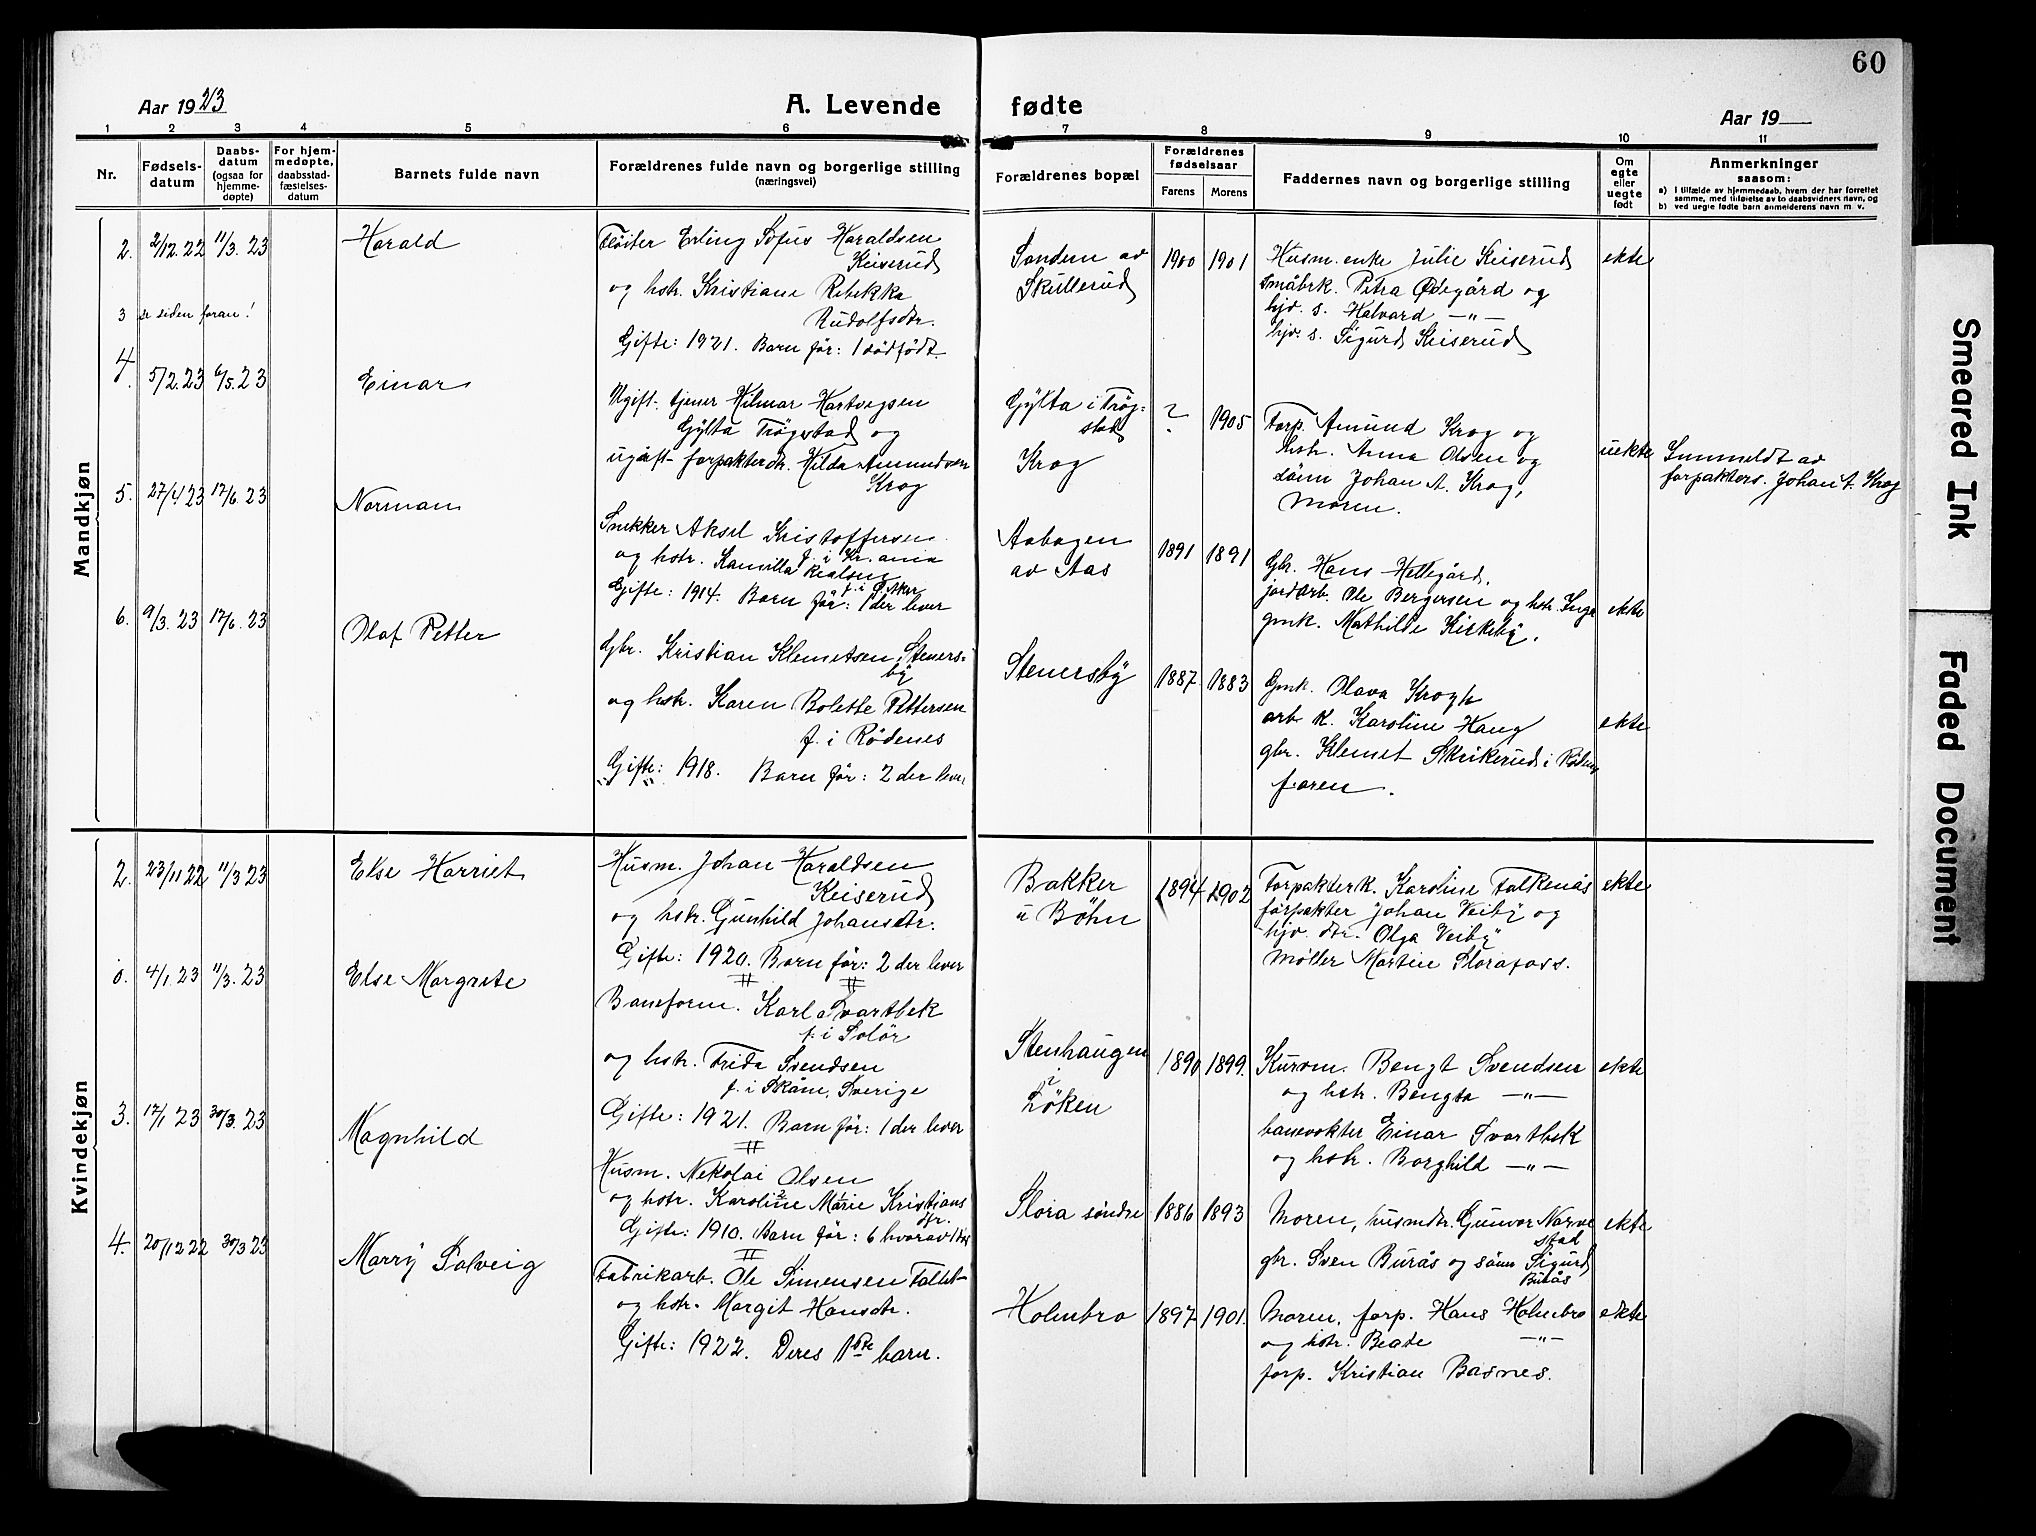 60
Aar 1923
A. Levende fødte
Aar 19
1 2 3 4 5 6 7 8 9 10 11
Nr.
Fødsels-
datum
Daabs-
datum
(ogsaa for
hjemme-
døpte)
For hjem-
medøpte,
daabsstad-
fæstelses-
datum
Barnets fulde navn
Forældrenes fulde navn og borgerlige stilling
(næringsvei)
Forældrenes bopæl
Forældrenes
fødselsaar
Farens
Morens
Faddernes navn og borgerlige stilling
Om
egte
eller
uegte
født
Anmerkninger
saasom:
a) i tilfælde av hjemmedaab, hvem der har forrettet
samme, med tilføielse av to daabsvidners navn, og
b) ved uegte fødte barn anmelderens navn m. v.
Mandkjøn
2. 2/12.22 11/3.23 Harald
Fløiter Erling Sofus Haraldsen
Keiserud
og hstr. Kristiane Rebekka
Rudolfsdtr.
Gifte: 1921. Barn før: 1 dødfødt.
Sanden av
Skullerud
1900 1901
Husm. enke Julie Keiserud
småbrk. Petra Ødegård og
hjv. s. Halvard —"—
hjv. s. Sigurd Keiserud
ekte
3 se siden foran!
4. 5/2.23 6/5.23 Einar
Ugift. tjener Hilmar Hartvigsen
Gylta Trøgstad og
ugift forpakterdtr. Hilda Amundsen
Krog
Gylta i Trøg-
stad
Krog
? 1905
Forp. Amund Krog og
hstr. Anna Olsen og
sønn Johan A. Krog,
Moren.
uekte
Innmeldt av
forpakters. Johan A. Krog
5. 27/4 23 17/6 23 Norman
Snekker Aksel Kristoffersen
f. i Kr.ania
og hstr. Kamilla
f. i Ø. Aker
Gifte: 1914. Barn før: 1 der lever
Aabogen
av Aas
1891 1891
Gbr. Hans Hellegård,
jordarb. Ole Bergersen og hstr. Inga
gmk. Mathilde Kirkeby.
ekte
6. 9/3. 23 17/6. 23 Olaf Petter
Gbr. Kristian Klemetsen Steners-
by
og hstr. Karen Bolette Pettersen
f. i Rødenes
Gifte: 1918. Barn før: 2 der lever
Stenersby
1887 1883
Gmk. Olava Krogh
arb. k. Karoline Haug
gbr. Klemet Skrikerud i Rødenes
faren.
ekte
Kvindekjøn
2. 23/11 22 11/3 23 Else Harriet
Husm. Johan Haraldsen
Keiserud
og hstr. Gunhild Johansdtr.
Gifte: 1920. Barn før: 2 der lever
Bakker
u Bøhn
1894 1902
Forpakterk. Karoline Falkenås
forpakter Johan Veiby og
hjv. dtr. Olga Veiby
Møller Martin Slorafoss.
ekte
4/1.23 11/3.23 Else Margrete
Baneform. Karl Svartbek
f. i Solør
og hstr. Frida Svendsen
f. i Skåne, Sverige
Gifte: 1921. Barn før: 1 der lever
Stenhaugen
i
Løken
1890 1899.
Kurvm. Bengt Svendsen
og hstr. Bengta —"—
banevokter Einar Svartbek
og hstr. Borghild —"—
ekte
3. 17/1 23 30/3.23 Magnhild
Husm. Nekolai Olsen
og hstr. Karoline Marie Kristians
dtr.
Gifte: 1910. Barn før: 6 hvorav
Slora søndre
1886 1893
Moren, husmdtr. Gunvor Narve
stad
gbr. Sven Burås og sønn Sigurd
Burås
ekte
4. 20/12 22 30/3 23 Marry Solveig
Fabrikarb. Ole Simensen
og hstr. Margit Hansdtr.
Gifte: 1922. Deres 1ste barn.
Holmbro
1897 1901.
Moren, forp. Hans Holmbro
og hstr. Beate —"—
forp. Kristian Basnes.
ekte
Smeared Ink
Faded Document